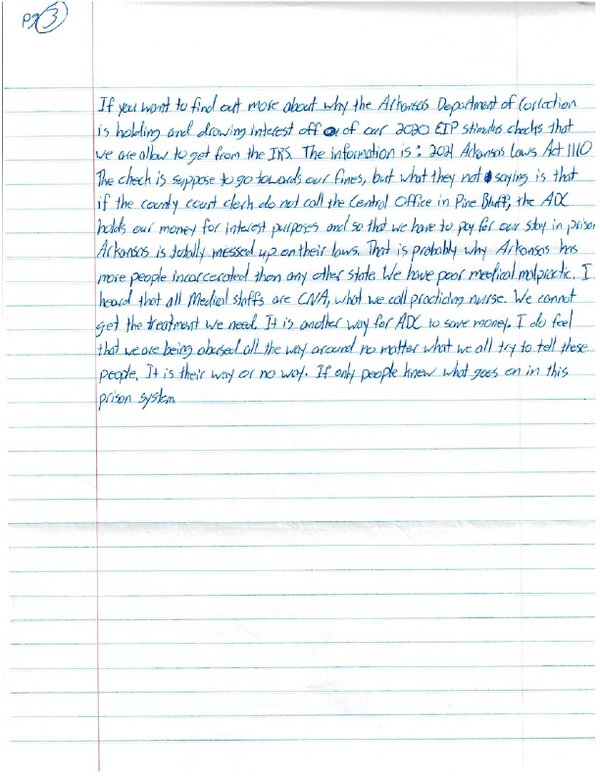 pg 3
If you want to find out more about why the Arkansas Department of Correction
is holding and drawing interest off of our 2020 EIP stimulus checks that
we are allow to get from the IRS. The information is : 2021 Arkansas Laws Act 1110
The check is suppose to go towards our fines, but what they not saying is that
if the county court clerk do not call the Central Office in Pine Bluff, the ADC
holds our money for interest purposes and so that we have to pay for our stay in prison
Arkansas is totally messed up on their laws. That is probably why Arkansas has
more people incarcerated then any other state. We have poor medical malpractic. I
heard that all Medical staffs are CNA, what we call practicing nurse. We cannot
get the treatment we need. It is another way for ADC to save money. I do feel
that we are being abused all the way around no matter what we all try to tell these
people. It is their way or no way. If only people knew what goes on in this
prison system